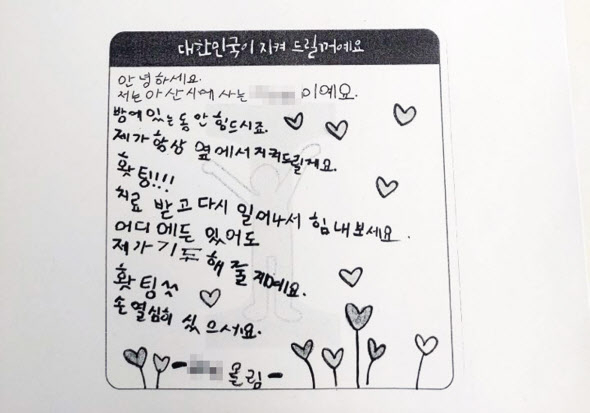 대한민국이 지켜 드릴꺼예요
안녕하세요.
저는 아산시에 사는 이예요.
방에 있는 동안 힘드시죠.
제가 항상 옆에서 지켜드릴게요.
홧팅!!!
치료 받고 다시 일어나서 힘내보세요.
어디에든 있어도
제가 기도해 줄게예요.
홧팅
손 열심히 씼으서요.
- 올림-